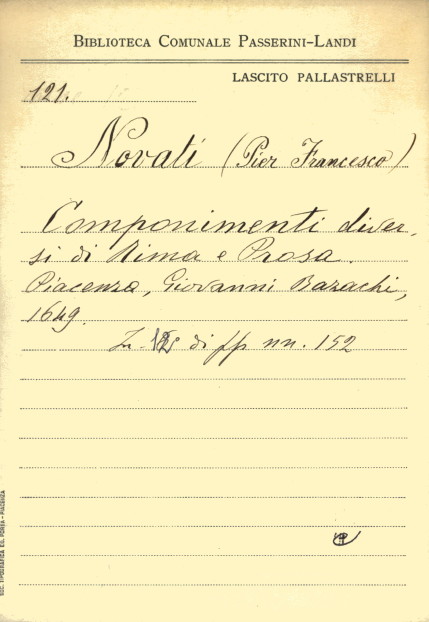 BIBLIOTECA COMUNALE PASSERINI-LANDI
LASCITO PALLASTRELLI
121.
Novati (Pier Francesco)
Componimenti diver,
si di Rima e Prosa.
Piacenza, Giovanni Bazachi,
1649.
In di pp nn. 152
SOC. TIPOGRAFICA ED. PORTA - PIACENZA